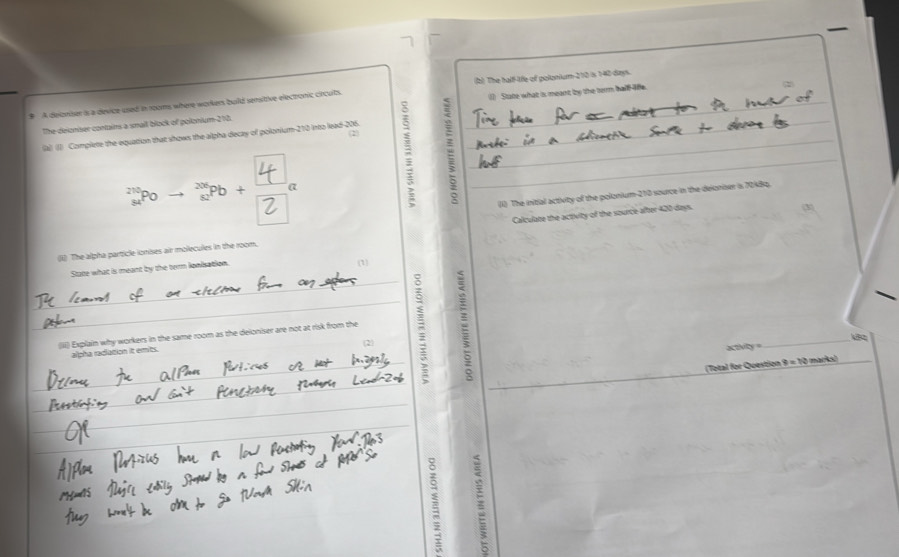 A deioniser is a device used in rooms where workers build sensitive electronic circuits.
The deioniser contains a small block of polonium-210.
(a) (i) Complete the equation that shows the alpha decay of polonium-210 into lead-206.
(2)
210 84 Po → 206 82 Pb + 4 2 α
(ii) The alpha particle ionises air molecules in the room.
State what is meant by the term ionisation.
(1)
The removal of an electron from an
(iii) Explain why workers in the same room as the deioniser are not at risk from the
alpha radiation it emits.
(2)
the alpha particles not highly
penetrating and can't penetrate
OR
Alpha particles have a low penetrating power. This
means they're easily stopped by a few sheets of paper so
they won't be able to go through skin
DO NOT WRITE IN THIS AREA
DO NOT WRITE IN THIS AREA
DO NOT WRITE IN THIS
DO NOT WRITE IN THIS AREA
DO NOT WRITE IN THIS AREA
NOT WRITE IN THIS AREA
(b) The half-life of polonium-210 is 140 days.
(i) State what is meant by the term half-life.
(2)
Time taken for the number of
in a to by
half
(ii) The initial activity of the polonium-210 source in the deioniser is 70 kBq.
Calculate the activity of the source after 420 days.
(3)
activity = kBq
(Total for Question 9 = 10 marks)